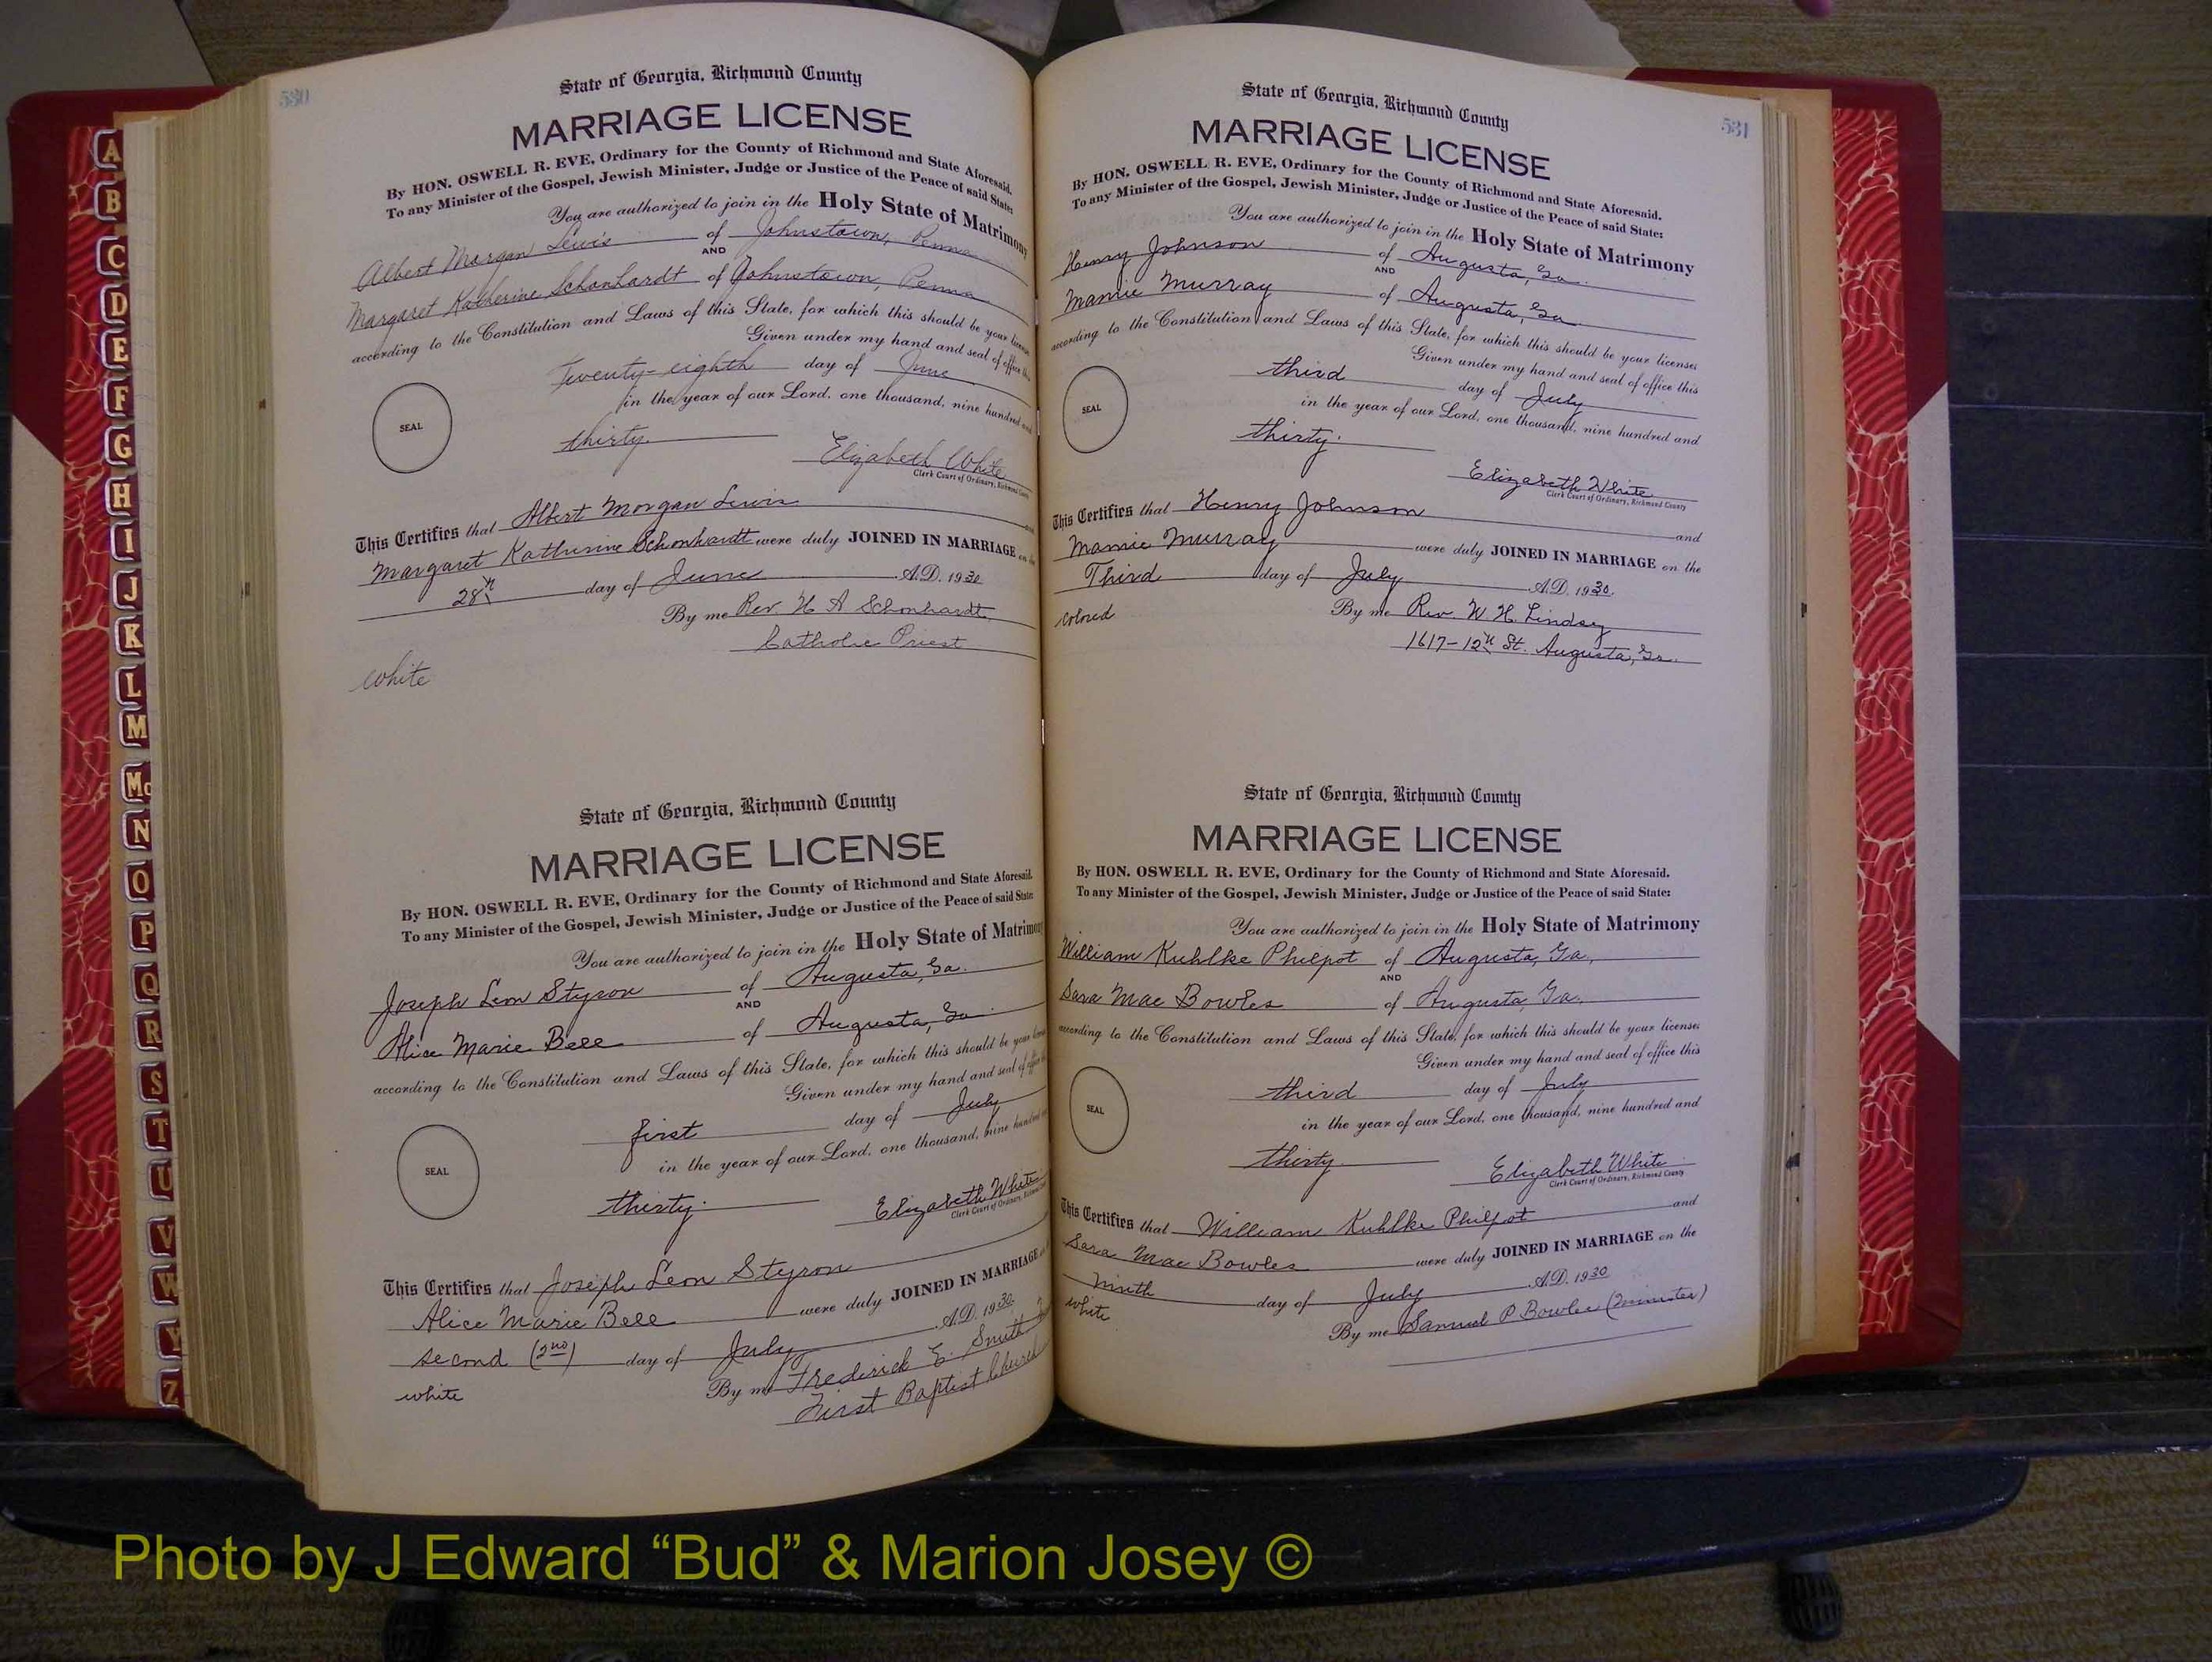 530
State of Georgia, Richmond County
MARRIAGE LICENSE
By HON. OSWELL R. EVE, Ordinary for the County of Richmond and State Aforesaid.
To any Minister of the Gospel, Jewish Minister, Judge or Justice of the Peace of said State:
You are authorized to join in the Holy State of Matrimony
Albert Morgan Lewis of Johnstown, Penna
AND
Margaret Katherine Schonhardt of Johnstown, Penna
according to the Constitution and Laws of this State, for which this should be your license
Given under my hand and seal of office this
Twenty-eighth day of June
in the year of our Lord, one thousand, nine hundred and
SEAL
thirty.
Elizabeth White
Clerk Court of Ordinary, Richmond County
This Certifies that Albert Morgan Lewis and
Margaret Katherine Schonhardt were duly JOINED IN MARRIAGE on the
28th day of June A.D. 1930
By me Rev. H A Schonhardt
Catholic Priest
white
State of Georgia, Richmond County
MARRIAGE LICENSE
By HON. OSWELL R. EVE, Ordinary for the County of Richmond and State Aforesaid.
To any Minister of the Gospel, Jewish Minister, Judge or Justice of the Peace of said State:
You are authorized to join in the Holy State of Matrimony
Joseph Leon Styron of Augusta, Ga.
AND
Alice Marie Bell of Augusta, Ga.
according to the Constitution and Laws of this State, for which this should be your license
Given under my hand and seal of office
first day of July
in the year of our Lord, one thousand, nine hundred
SEAL
thirty.
Elizabeth White
Clerk Court of Ordinary, Richmond County
This Certifies that Joseph Leon Styron
Alice Marie Bell were duly JOINED IN MARRIAGE
second (2nd) day of July A.D. 1930.
By me Frederick E. Smith
First Baptist Church
white
531
State of Georgia, Richmond County
MARRIAGE LICENSE
By HON. OSWELL R. EVE, Ordinary for the County of Richmond and State Aforesaid.
To any Minister of the Gospel, Jewish Minister, Judge or Justice of the Peace of said State:
You are authorized to join in the Holy State of Matrimony
Henry Johnson of Augusta, Ga.
AND
Mamie Murray of Augusta, Ga
according to the Constitution and Laws of this State, for which this should be your license;
Given under my hand and seal of office this
third day of July
in the year of our Lord, one thousand, nine hundred and
SEAL
thirty.
Elizabeth White
Clerk Court of Ordinary, Richmond County
This Certifies that Henry Johnson and
Mamie Murray were duly JOINED IN MARRIAGE on the
Third day of July A.D. 1930.
colored
By me Rev. W. H. Lindsey
1617-12th St. Augusta, Ga.
State of Georgia, Richmond County
MARRIAGE LICENSE
By HON. OSWELL R. EVE, Ordinary for the County of Richmond and State Aforesaid.
To any Minister of the Gospel, Jewish Minister, Judge or Justice of the Peace of said State:
You are authorized to join in the Holy State of Matrimony
William Kuhlke Philpot of Augusta, Ga.
AND
Sara Mae Bowles of Augusta, Ga.
according to the Constitution and Laws of this State, for which this should be your license;
Given under my hand and seal of office this
third day of July
in the year of our Lord, one thousand, nine hundred and
SEAL
thirty.
Elizabeth White
Clerk Court of Ordinary, Richmond County
This Certifies that William Kuhlke Philpot and
Sara Mae Bowles were duly JOINED IN MARRIAGE on the
Ninth day of July A.D. 1930
white
By me Samuel P Bowles (minister)
A
B
C
D
E
F
G
H
I
J
K
L
M
Mc
N
O
P
Q
R
S
T
U
V
W
Y
Z
Photo by J Edward “Bud” & Marion Josey ©